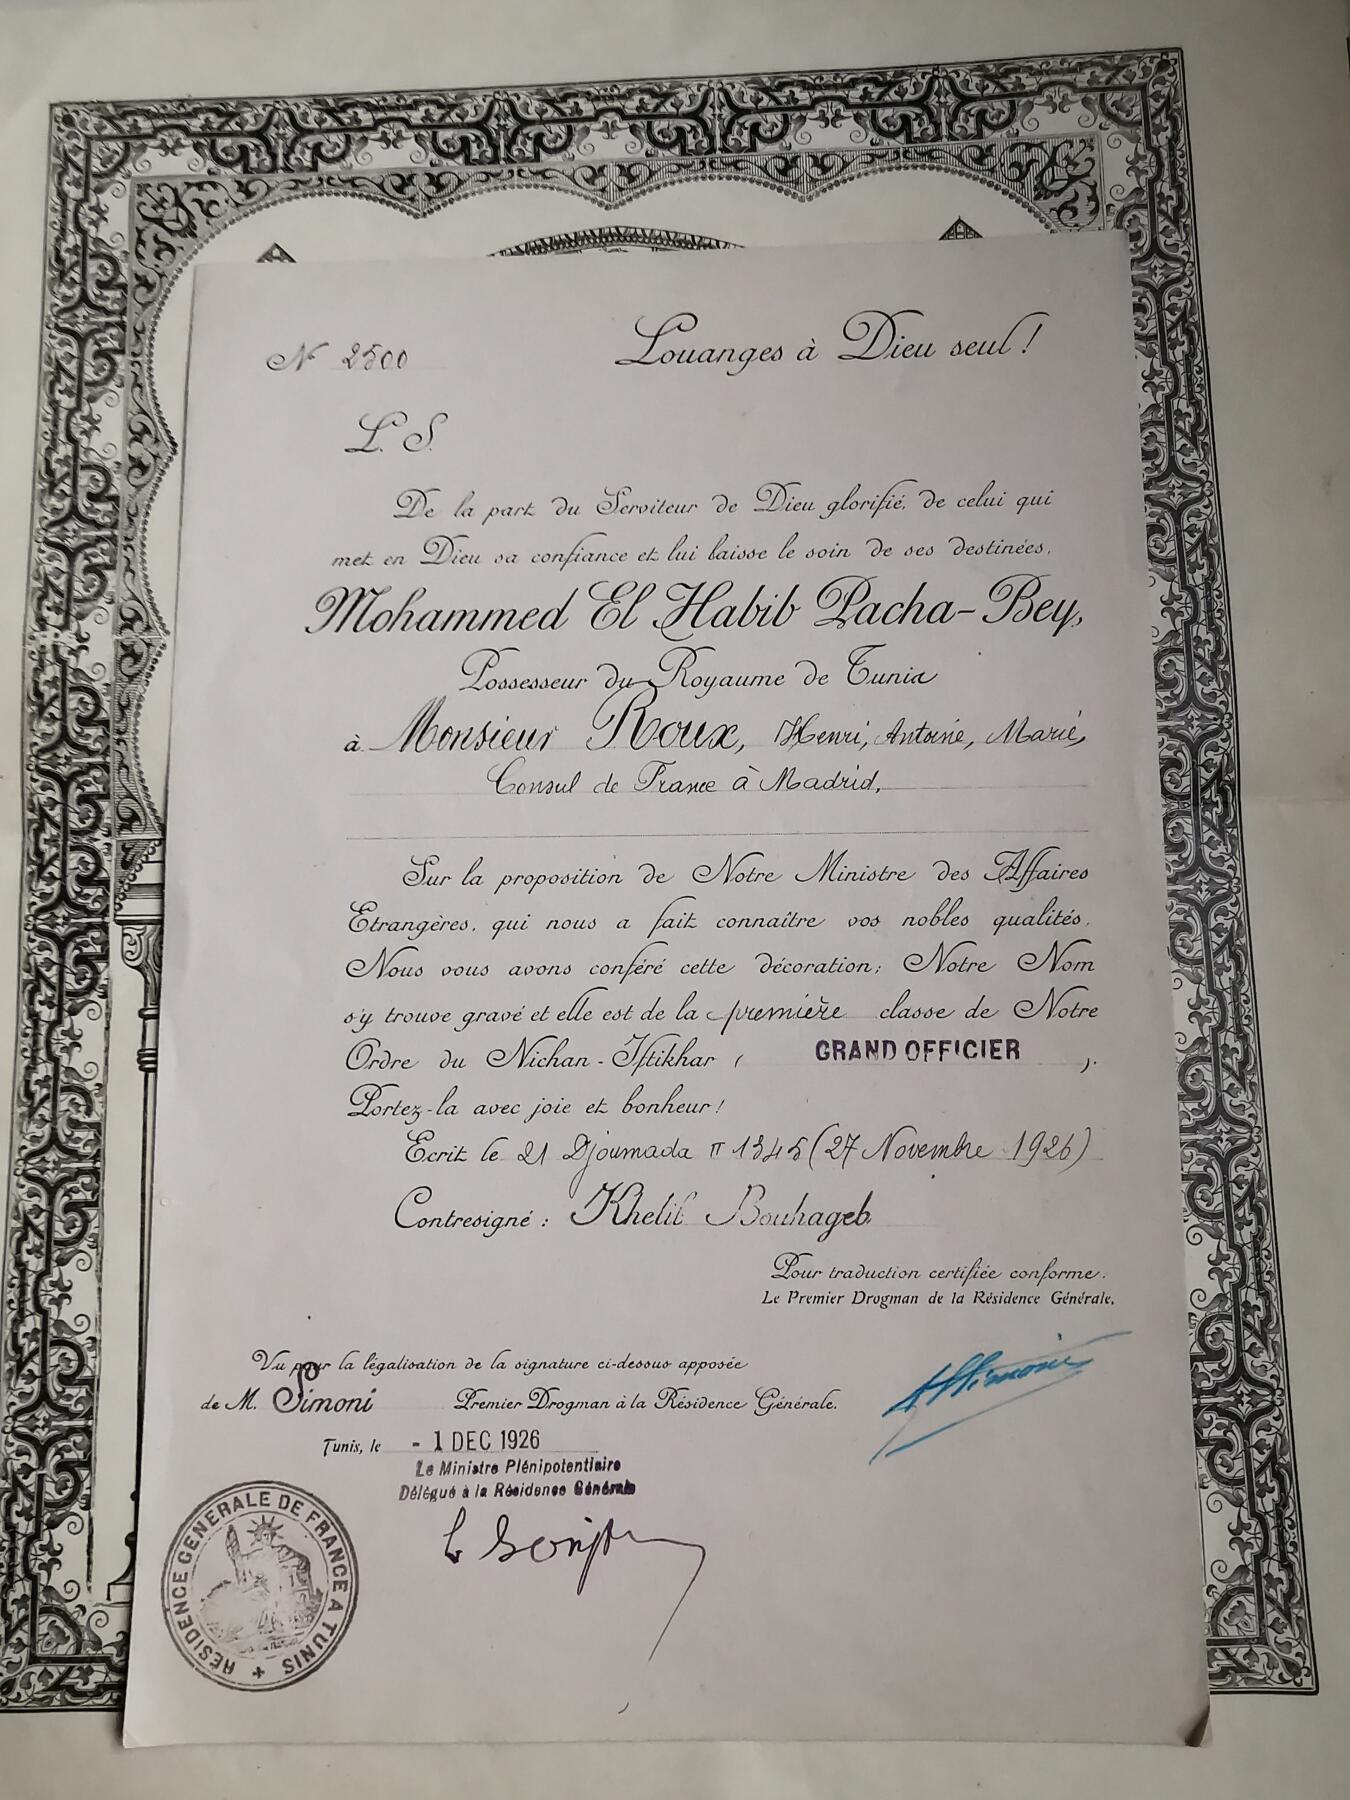 N 2500
Louanges à Dieu seul !
L. S.
De la part du Serviteur de Dieu glorifié, de celui qui
met en Dieu sa confiance et lui laisse le soin de ses destinées,
Mohammed El Habib Pacha-Bey,
Possesseur du Royaume de Tunis
à Monsieur Roux, Henri, Antoine, Marie,
Consul de France à Madrid,
Sur la proposition de Notre Ministre des Affaires
Etrangères, qui nous a fait connaître vos nobles qualités,
Nous vous avons conféré cette décoration; Notre Nom
s'y trouve gravé et elle est de la première classe de Notre
Ordre du Nichan-Iftikhar ( GRAND OFFICIER ).
Portez-la avec joie et bonheur !
Ecrit le 21 Djoumada II 1345 (27 Novembre 1926)
Contresigné : Khelil Bouhageb
Pour traduction certifiée conforme.
Le Premier Drogman de la Résidence Générale,
Vu pour la légalisation de la signature ci-dessus apposée
de M. Simoni Premier Drogman à la Résidence Générale.
Simoni
Tunis, le - 1 DEC 1926
Le Ministre Plénipotentiaire
Délégué à la Résidence Générale
RÉSIDENCE GÉNÉRALE DE FRANCE A TUNIS